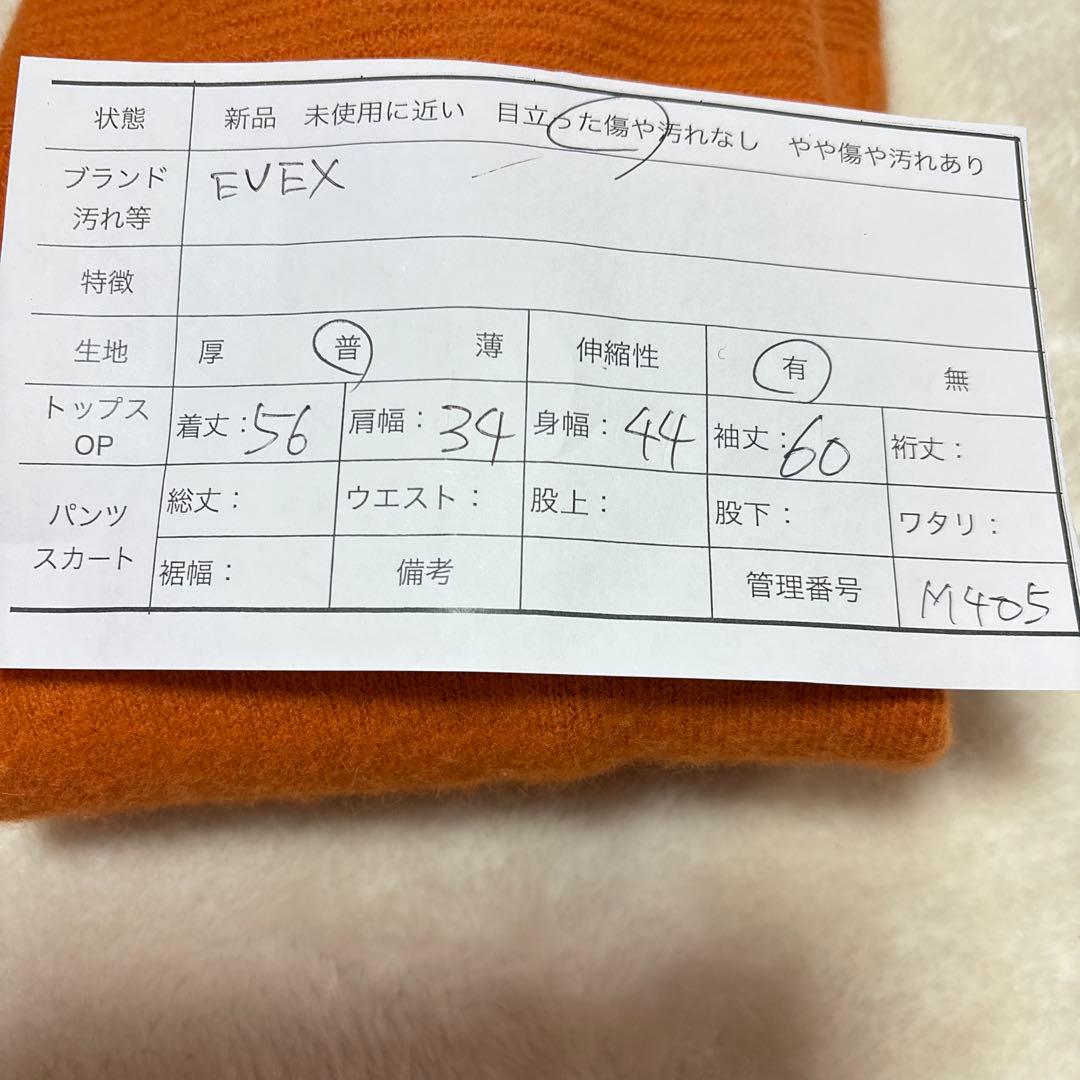 状態 新品 未使用に近い 目立った傷や汚れなし やや傷や汚れあり
ブランド EVEX
汚れ等
特徴
生地 厚 普 薄 伸縮性 有 無
トップス
OP 着丈：56 肩幅：34 身幅：44 袖丈：60 裄丈：
パンツ
スカート
総丈： ウエスト： 股上： 股下： ワタリ：
裾幅： 備考 管理番号 M405